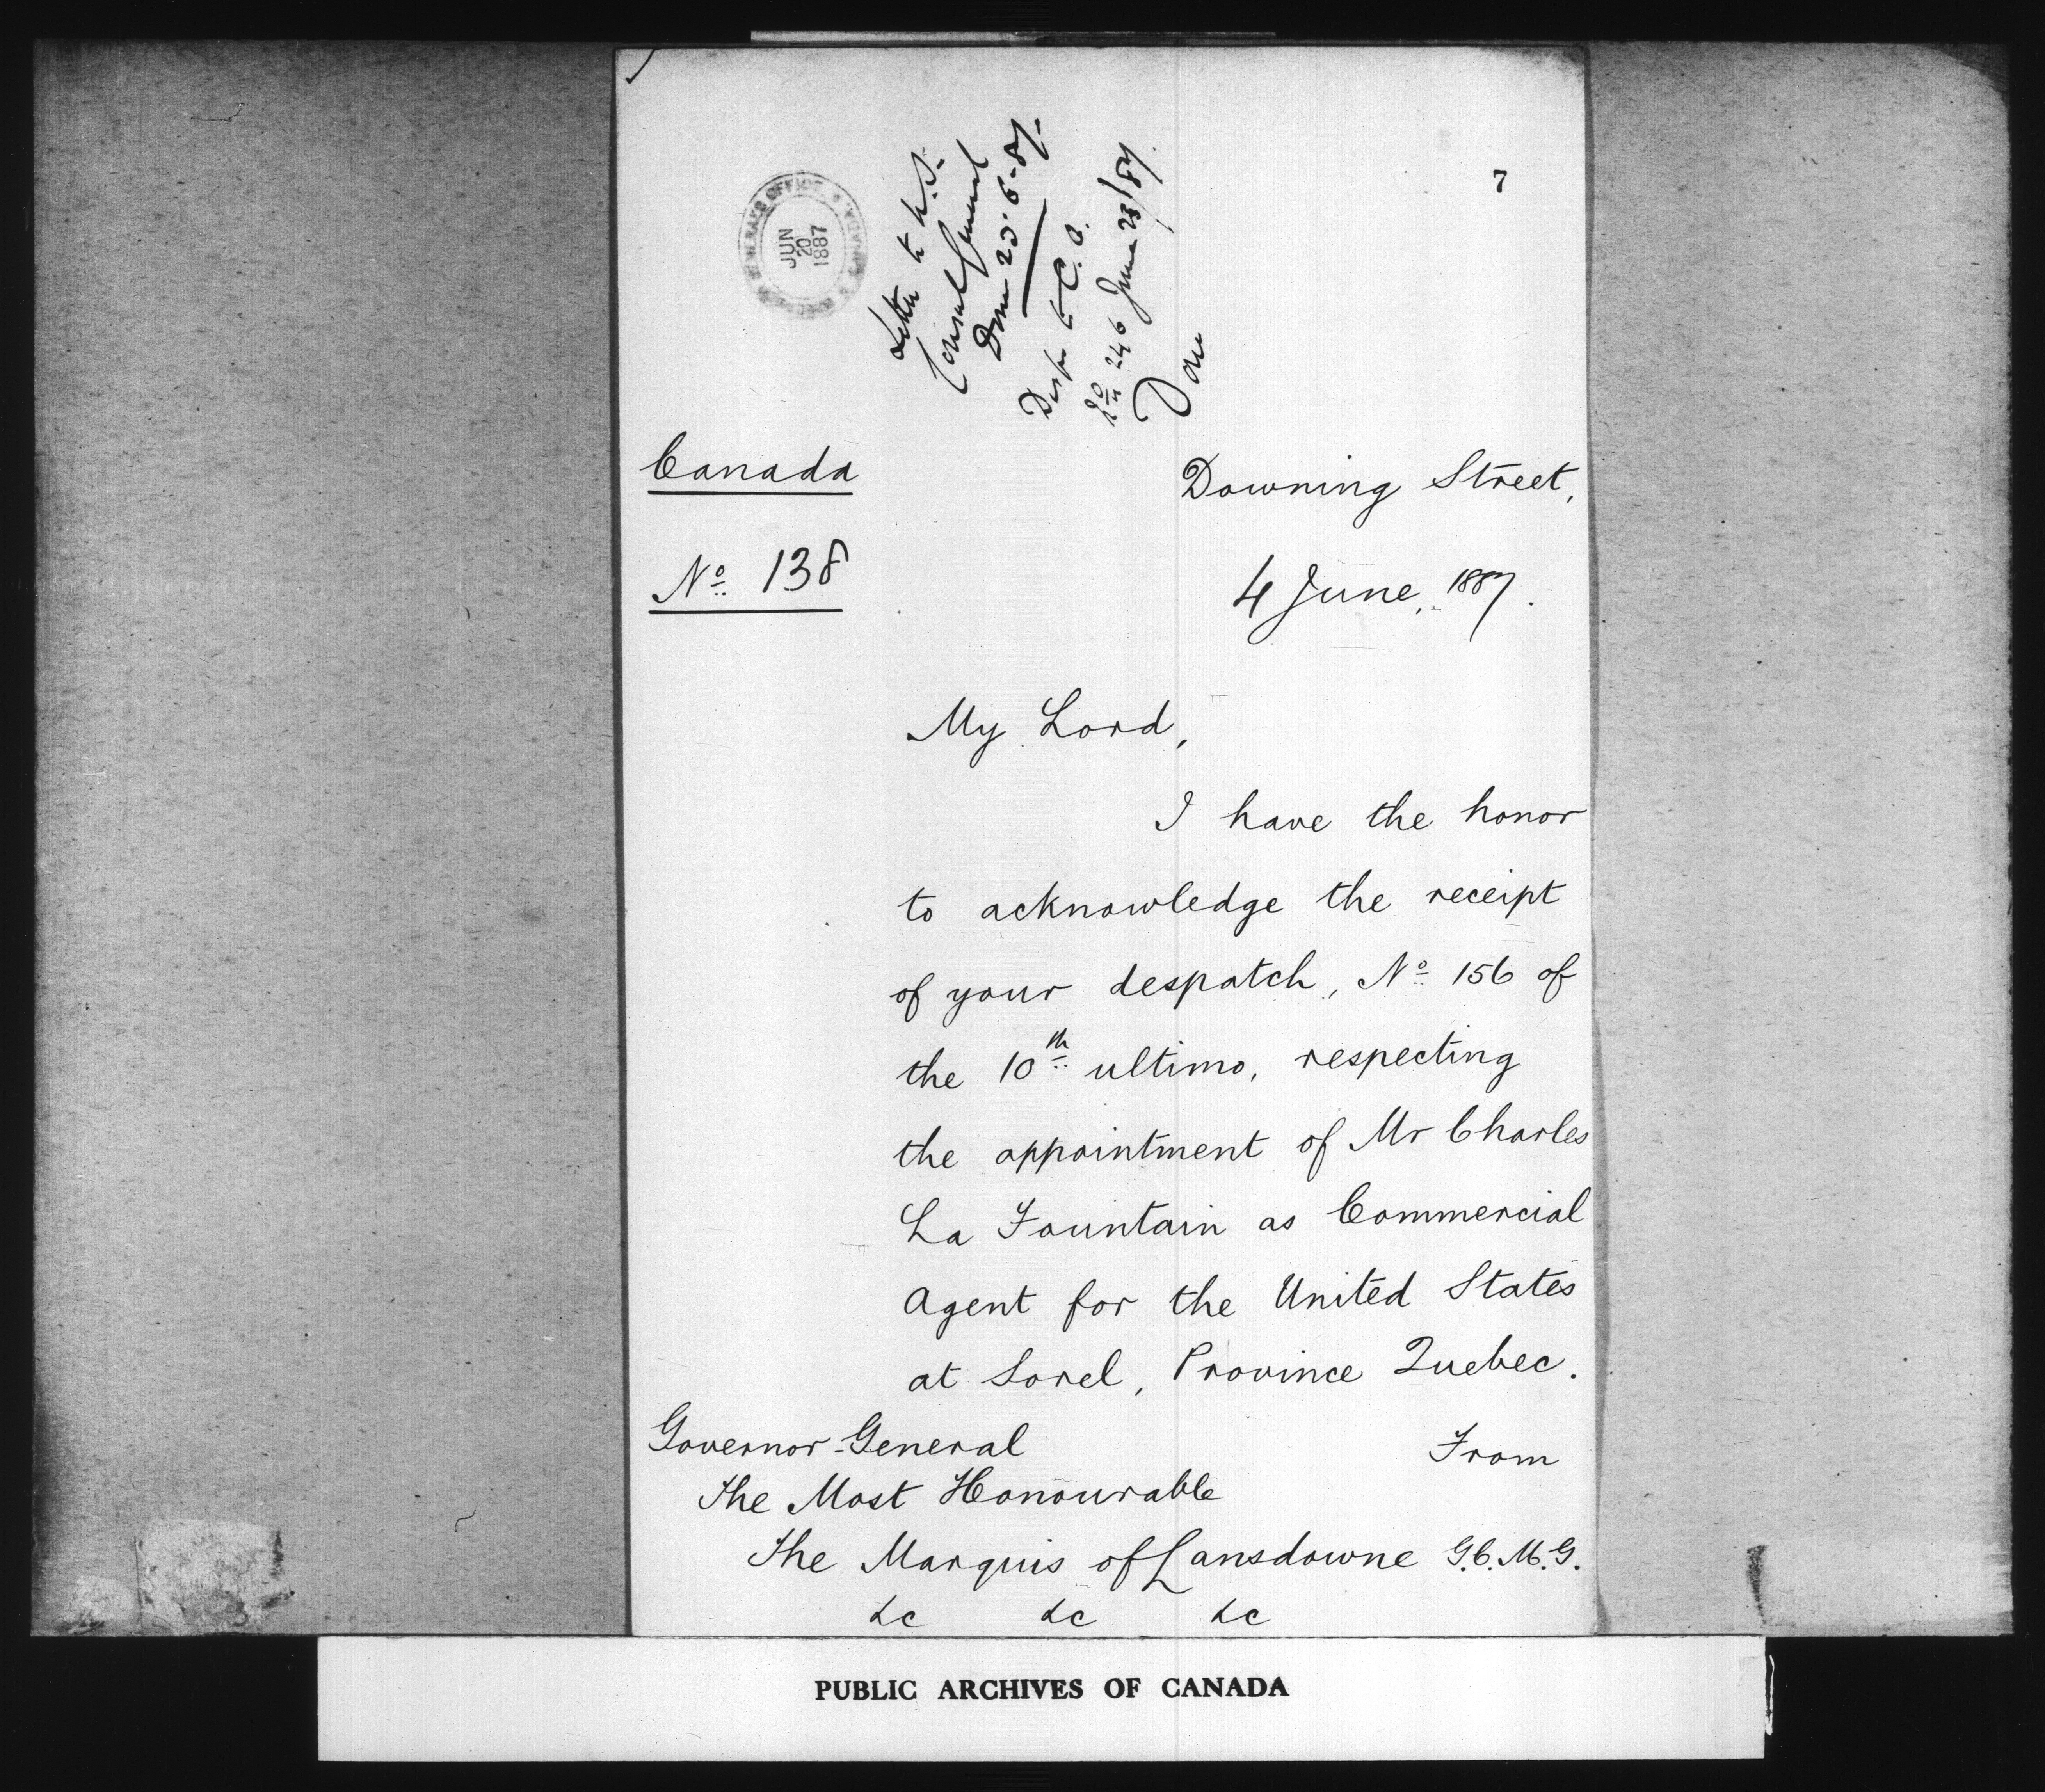 7
GOVERNOR GENERAL'S OFFICE CANADA
JUN
20
1887
Letter to U.S.
Consul General
Done 20.6-87.
Desp. to C.O.
No 246 June 23/87.
Done
Canada
No 138
Downing Street,
4 June, 1887.
My Lord,
I have the honor
to acknowledge the receipt
of your despatch, No 156 of
the 10th ultimo, respecting
the appointment of Mr Charles
La Fountain as Commercial
Agent for the United States
at Sorel, Province Quebec.
From
Governor-General
The Most Honourable
The Marquis of Lansdowne G.C.M.G.
&c &c &c
PUBLIC ARCHIVES OF CANADA